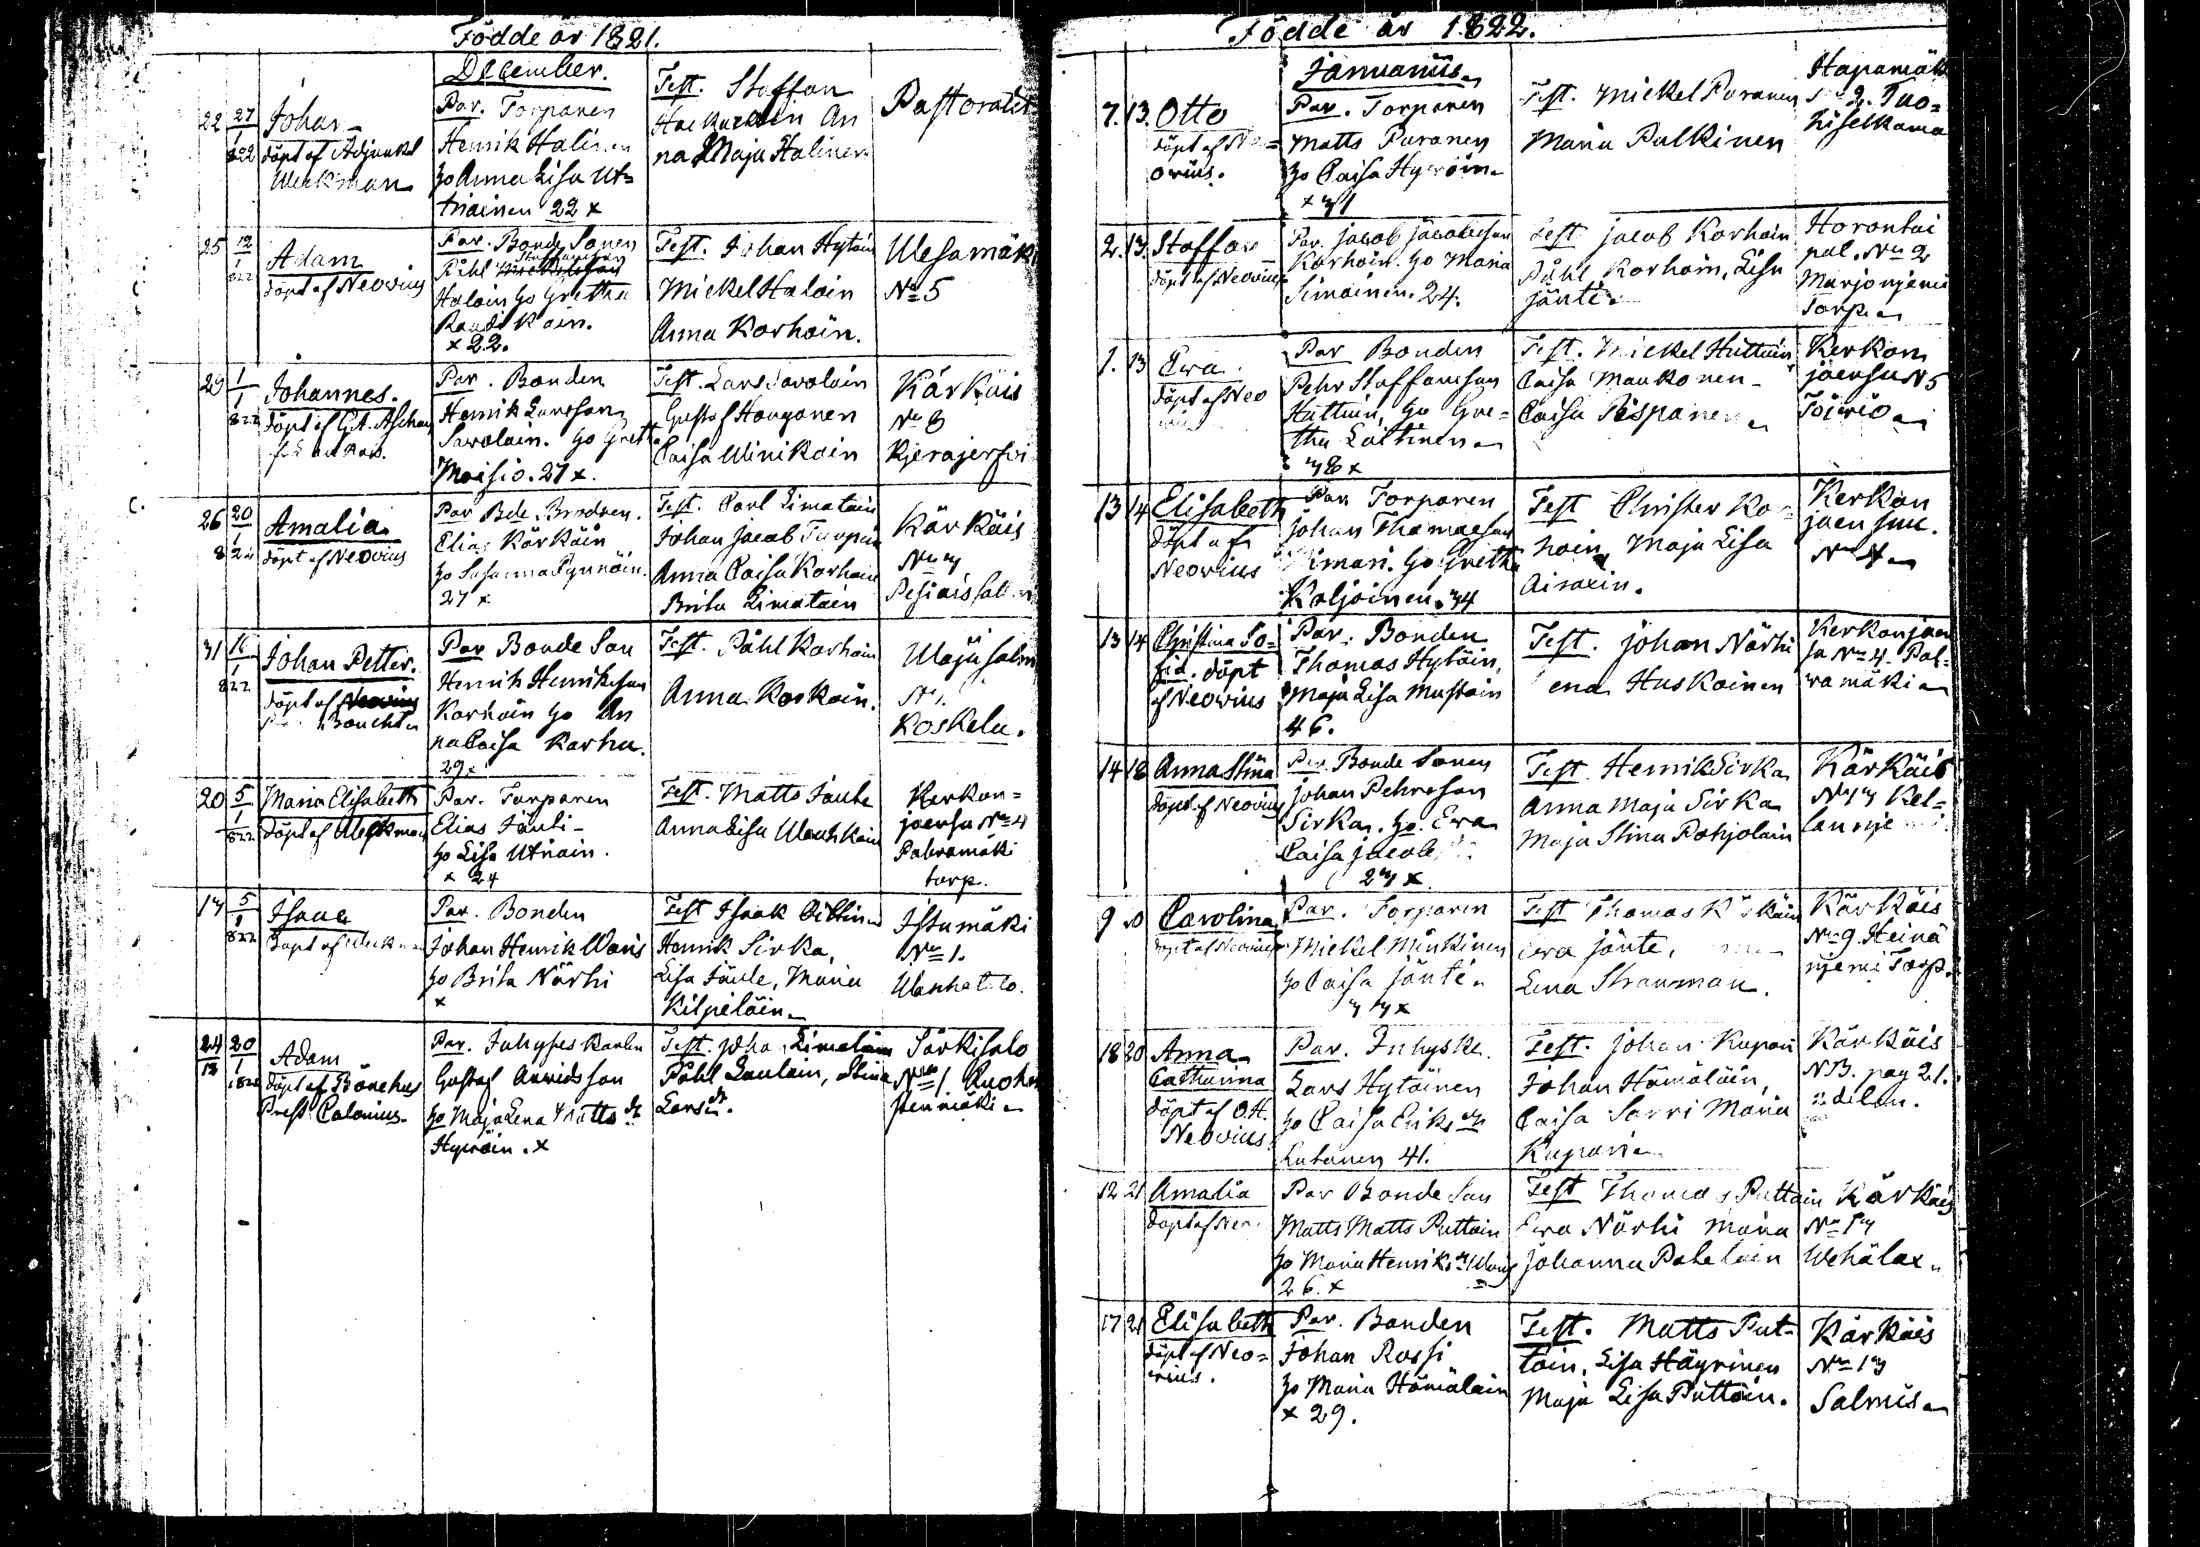 Födde år 1821.
December.
22 27/1 822
Johan
döpt af Adjunkt
Weckman
Par. Torparen
Henrik Halinen
ho Anna Lisa Ut=
triainen 22 x
Test. Staffan
An
na Maja Halinen
Pastoratet
25 12/1 822
Adam
döpt af Neovius
Par. Bonde Sonen
Påhl Staffansson
Halain ho Gretha
x 22.
Test. Johan Hytöin
Mickel Halain
Anna Korhoin.
Ulasamäki
No 5
29 1/1 822
Johannes.
döpt af
Par. Bonden
Henrik Larsson
Savolain. ho Greth
Moisio. 27 x.
Test. Lars Savolain
Gustaf Hougonen
Caisa Winikain
Kärkäis
No 8
Kjerajerfwi
26 20/1 822
Amalia
döpt af Neovius
Par Bde. Brodren.
Elias Kärkäin
ho Susanna Pynnöin.
27 x
Test. Carl Limatain
Johan Jacob Turpein
Anna Caisa Korhoin
Brita Limatain
Kärkäis
No 7
31 16/1 822
Johan Petter.
döpt af
Par Bonde Son
Henrik Henriksson
Korhoin ho An
na Caisa Karhu.
29 x
Test. Påhl Korhoin
Anna Korkoin.
Koskela.
20 5/1 822
Maria Elisabeth
döpt af Weckman
Par. Torparen
Elias Jänti-
ho Lisa Utriain.
x 24
Test. Matts Jante
Anna Lisa
Kerkon=
joensu No 4
Palvamäki
torp.
17 5/1 822
Isaac
döpt af Weckman
Par. Bonden
Johan Henrik Waris
ho Brita Närhi
x
Test Isaak
Henrik Sirka,
Lisa Jänte, Maria
Kilpeläin
Istumäki
No 1.
24/12 20/1 1822
Adam
döpt af
Prest. Calonius.
Par. Inhyses Karlen
Gustaf Arvidsson
ho Maja Lena Matts dr
Hyvöin. x
Test. Joha Limatain
Påhl Laulain, Stina
Lars dr.
Särkisalo
No 1.
Födde år 1822.
Januarius
7. 13.
Otto
döpt af Ne=
ovius.
Par. Torparen
Matts Puranen
ho Caisa Hyvöin.
x 31
Test. Mickel Puranen
Maria Pulkinen
Hapamäki
No 2.
2. 13.
Staffan
döpt af Neovius
Par. Jacob Jacobsson
Korhoin. ho Maria
Simoinen. 24.
Test Jacob Korhoin
Påhl Korhoin, Lisa
Jänti
Horontai
pal. No 2
Marjonjemi
Torp
1. 13
Ewa.
döpt af Neo
vius
Par Bonden
Pehr Staffansson
Huttuin, ho Gre=
tha Laitinen
38 x
Test. Mickel Huttuin
Caisa Maukonen
Caisa Pispanen
Kerkon
joensu No 5
Toivio
13 14
Elisabeth
döpt af
Neovius
Par Torparen
Johan Thomasson
ho Gretha
Koljoinen. 34
Test Christer Kor
hoin, Maja Lisa
Airaxin.
Kerkon
joensuu.
No 4
13 14
Christina So=
fia. döpt
af Neovius
Par. Bonden
Thomas Hytöin,
Maja Lisa Mustoin
46.
Test. Johan Närhi
Lena Huskoinen
Kerkonjoen
su No 4. Pal=
wamäki
14 18
Anna Stina
döpt af Neovius
Par. Bonde Sonen
Johan Pehrsson
Sirka. ho. Ewa
Caisa Jacobs
27 x
Test. Henrik Sirka
Anna Maja Sirka
Maja Stina Pohjolain
Kärkäis
No 17 Kel=
lannjemi
9 20
Carolina
döpt af Neovius
Par. Torparen
Mickel Minkinen
ho Caisa Jänti
37 x
Test Thomas Kärkäin
Ewa Jänte,
Lena Strauman.
Kärkäis
No 9. Heinä
njemi Torp.
18 20
Anna
Catharina
döpt af O.H.
Neovius
Par. Inhyskr.
Lars Hytöinen
ho Caisa Eriks dr
Lutonen 41.
Test. Johan Kupari
Johan Hämäläin,
Caisa Sarri Maria
Kupari
Kärkäis
NB. pag 21.
12 21
Amalia
döpt af Neo.
Par Bonde Son
Matts Matts Puttain
ho Maria Henriks dr Waris
26. x
Test Thomas Puttain
Ewa Närhi Maria
Johanna Pakelain
Kärkäis
No 17
Wehälax
17 21
Elisabeth
döpt af Neo=
vius.
Par. Bonden
Johan Rossi
ho Maria Hämälain
x 29.
Test. Matts Put=
tain, Lisa Häyrinen
Maja Lisa Puttöin.
Kärkäis
No 17
Salmis